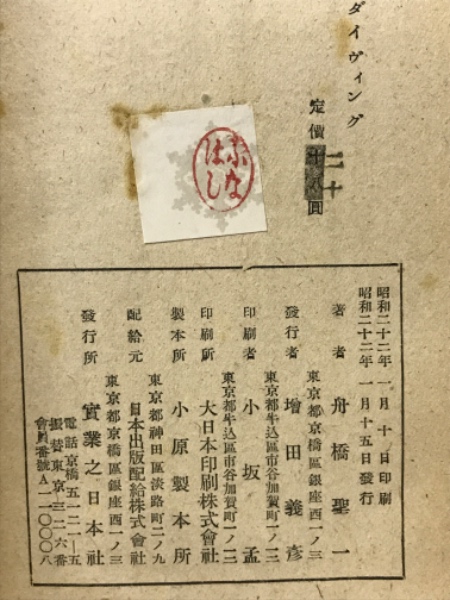 ダイヴィング
定價十八圓
二十
ふな
はし
昭和二十二年一月十日印刷
昭和二十二年一月十五日發行
著者 舟橋聖一
東京都京橋區銀座西一ノ三
發行者 增田義彦
東京都牛込區市谷加賀町一ノ三
印刷者 小坂孟
東京都牛込區市谷加賀町一ノ三
印刷所 大日本印刷株式會社
製本所 小原製本所
東京都神田區淡路町二ノ九
配給元 日本出版配給株式會社
東京都京橋區銀座西一ノ三
發行所 實業之日本社
電話京橋五一二一—五
振替東京三二六番
會員番號A一一〇〇〇八